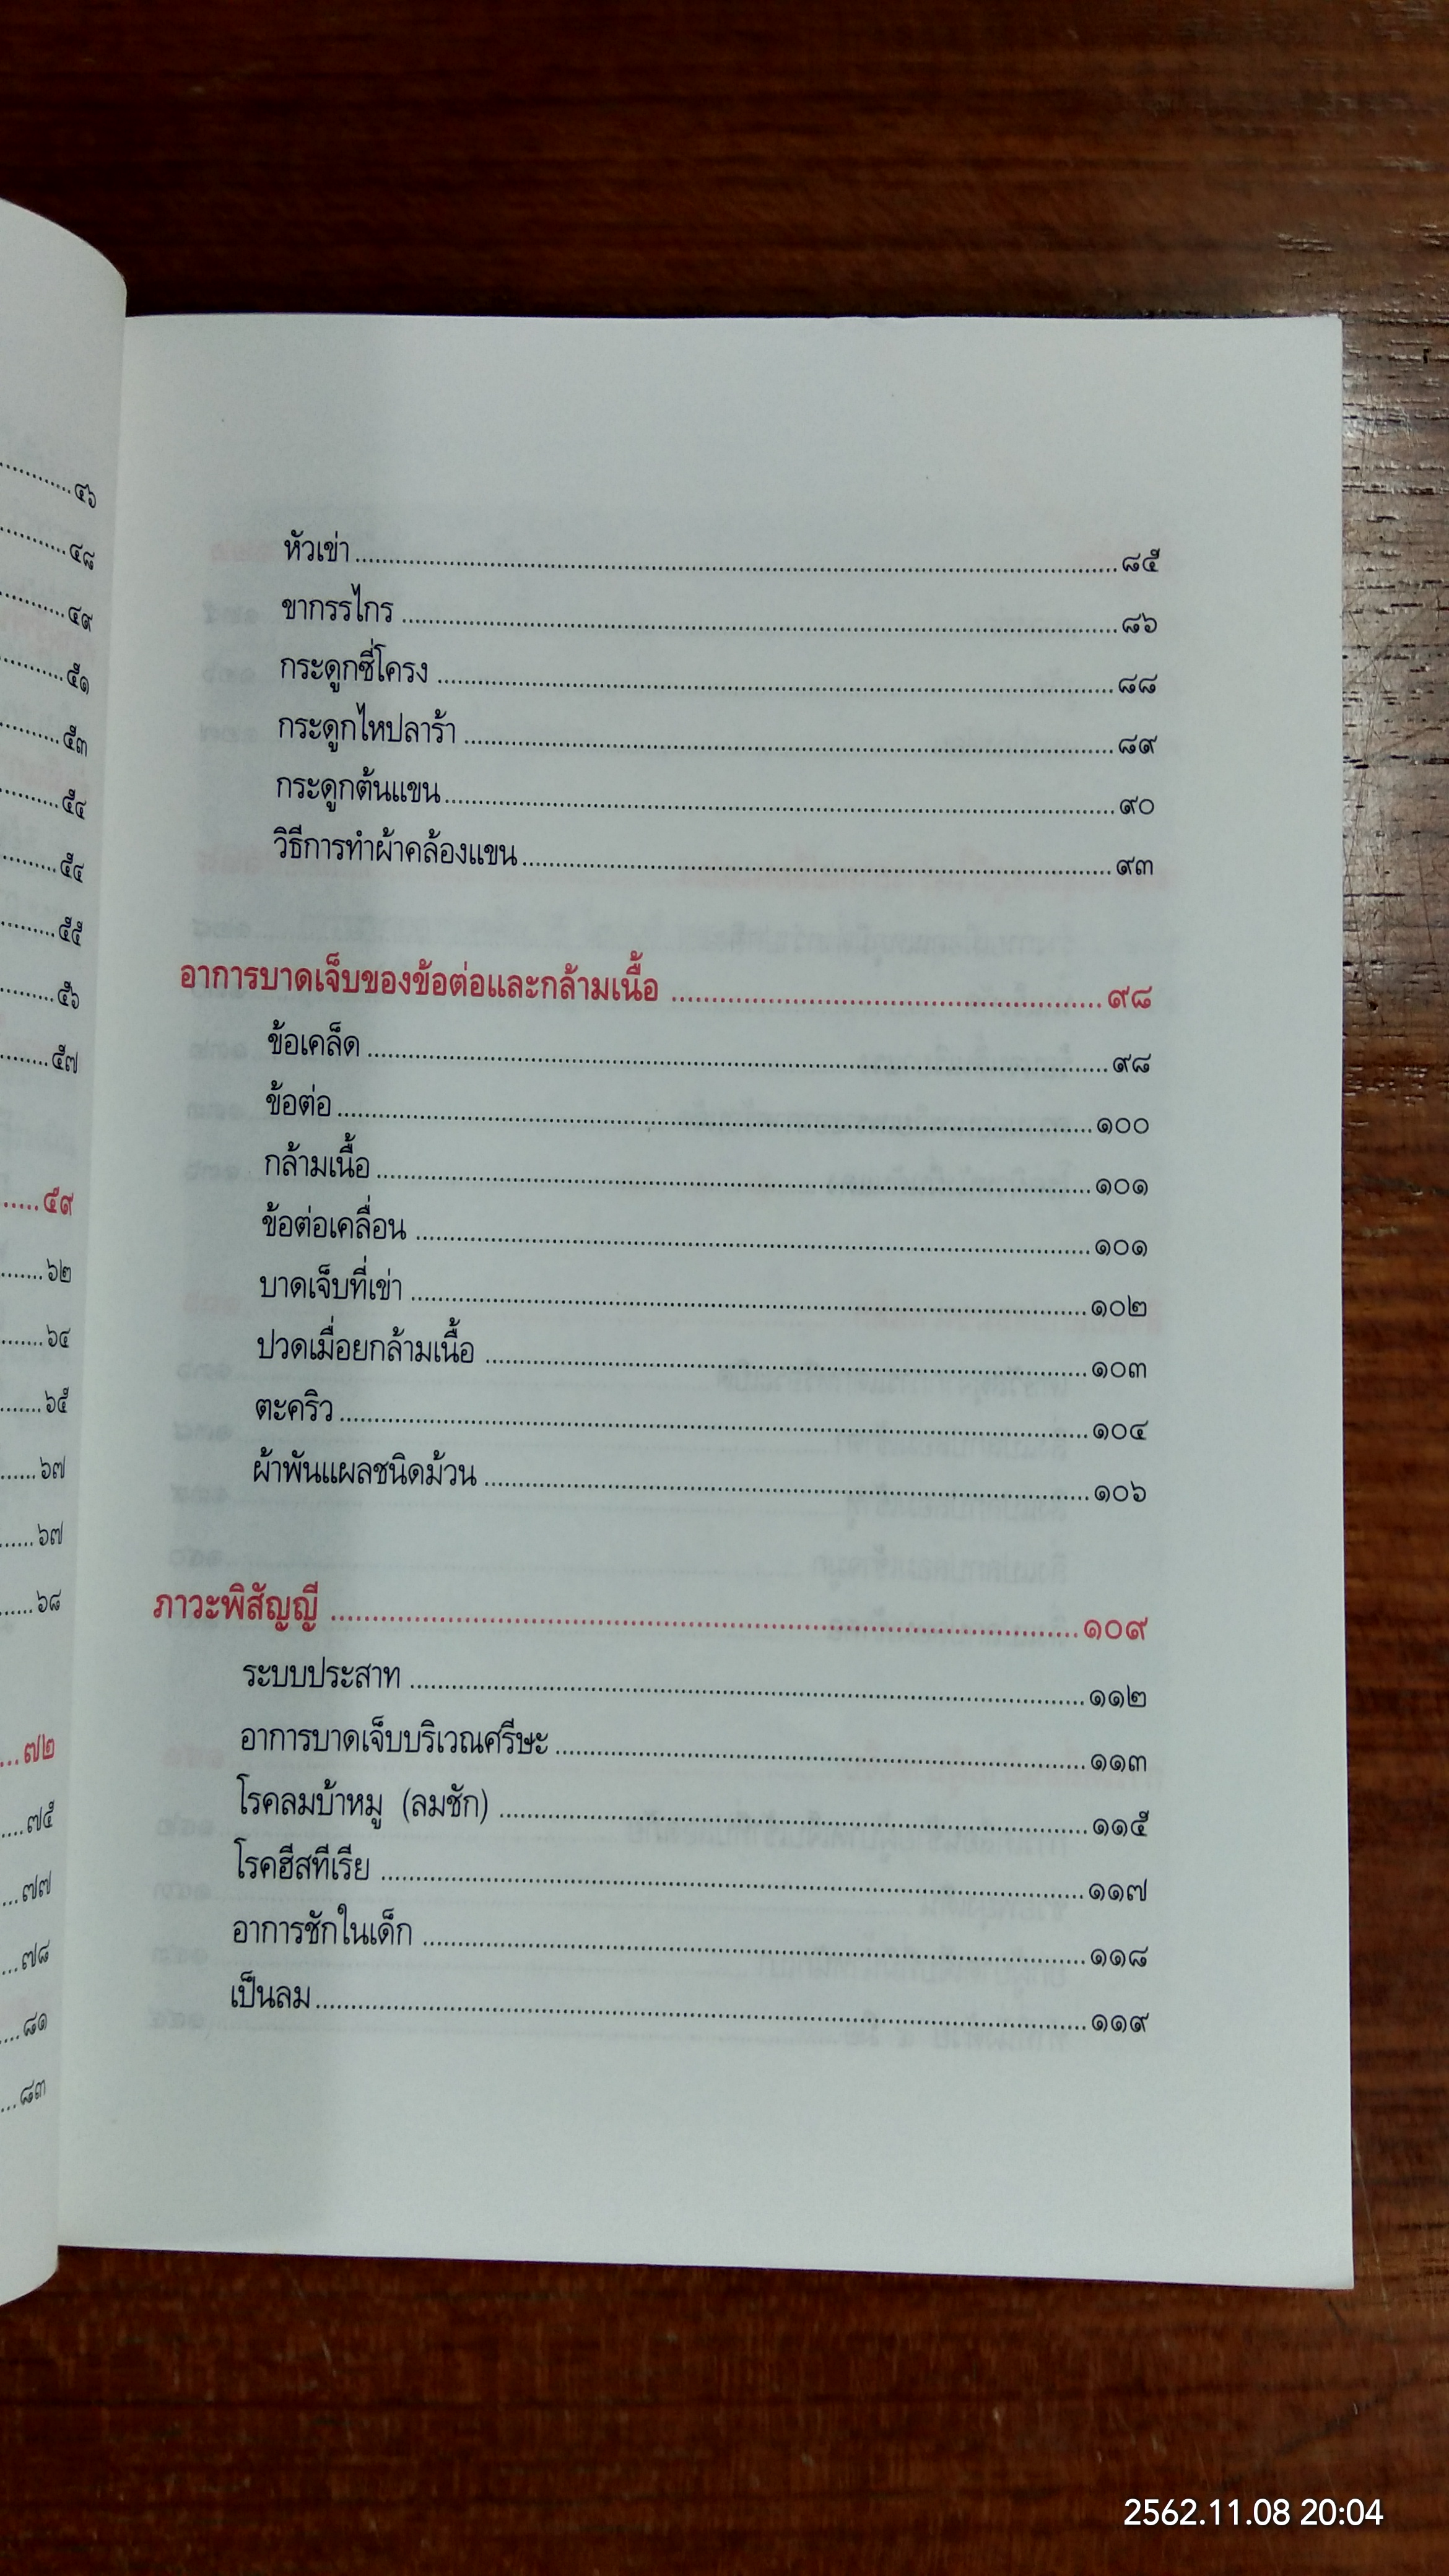 ....๔๖
....๔๘
....๔๙
....๕๑
....๕๓
....๕๔
....๕๔
....๕๕
....๕๖
....๕๗
....๕๙
....๖๒
....๖๔
....๖๕
....๖๗
....๖๗
....๖๘
....๗๒
....๗๕
....๗๗
....๗๘
....๘๑
....๘๓
หัวเข่า....๘๕
ขากรรไกร ....๘๖
กระดูกซี่โครง ....๘๘
กระดูกไหปลาร้า ....๘๙
กระดูกต้นแขน....๙๐
วิธีการทำผ้าคล้องแขน....๙๓
อาการบาดเจ็บของข้อต่อและกล้ามเนื้อ ....๙๘
ข้อเคล็ด....๙๘
ข้อต่อ....๑๐๐
กล้ามเนื้อ....๑๐๑
ข้อต่อเคลื่อน ....๑๐๑
บาดเจ็บที่เข่า ....๑๐๒
ปวดเมื่อยกล้ามเนื้อ ....๑๐๓
ตะคริว....๑๐๔
ผ้าพันแผลชนิดม้วน ....๑๐๖
ภาวะพิสัญญี ....๑๐๙
ระบบประสาท ....๑๑๒
อาการบาดเจ็บบริเวณศรีษะ....๑๑๓
โรคลมบ้าหมู (ลมชัก) ....๑๑๕
โรคฮีสทีเรีย ....๑๑๗
อาการชักในเด็ก ....๑๑๘
เป็นลม....๑๑๙
2562.11.08 20:04